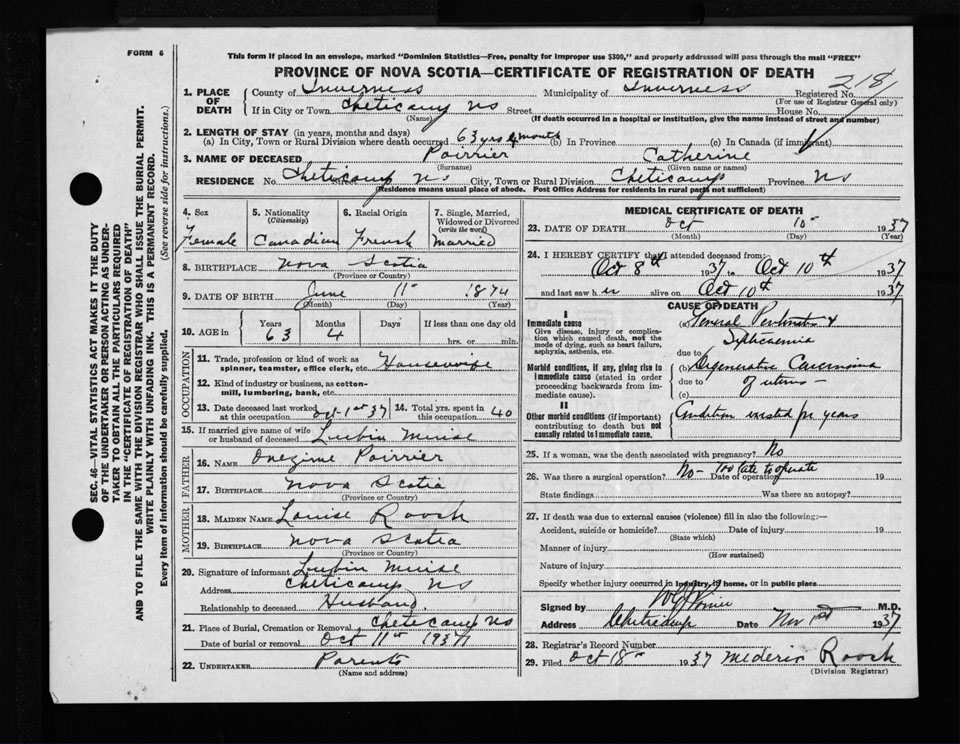 FORM 6
This form if placed in an envelope, marked "Dominion Statistics—Free, penalty for improper use $300," and properly addressed will pass through the mail "FREE"
PROVINCE OF NOVA SCOTIA—CERTIFICATE OF REGISTRATION OF DEATH
218
SEC. 46—VITAL STATISTICS ACT MAKES IT THE DUTY
OF THE UNDERTAKER OR PERSON ACTING AS UNDER-
TAKER TO OBTAIN ALL THE PARTICULARS REQUIRED
IN THE "CERTIFICATE OF REGISTRATION OF DEATH"
AND TO FILE THE SAME WITH THE DIVISION REGISTRAR WHO SHALL ISSUE THE BURIAL PERMIT.
WRITE PLAINLY WITH UNFADING INK. THIS IS A PERMANENT RECORD.
Every item of information should be carefully supplied. (See reverse side for instructions.)
1. PLACE OF DEATH
County of Inverness Municipality of Inverness Registered No.
(For use of Registrar General only)
If in City or Town Cheticamp NS Street House No.
(Name) (If death occurred in a hospital or institution, give the name instead of street and number)
2. LENGTH OF STAY (in years, months and days)
(a) In City, Town or Rural Division where death occurred 63 yrs 4 month (b) In Province (c) In Canada (if immigrant)
3. NAME OF DECEASED Poirrier Catherine
(Surname) (Given name or names)
RESIDENCE No. Cheticamp Street NS City, Town or Rural Division Cheticamp Province NS
(Residence means usual place of abode. Post Office Address for residents in rural parts not sufficient)
4. Sex
Female
5. Nationality
(Citizenship)
Canadian
6. Racial Origin
French
7. Single, Married,
Widowed or Divorced
(write the word)
Married
8. BIRTHPLACE Nova Scotia
(Province or Country)
9. DATE OF BIRTH June 11 1874
(Month) (Day) (Year)
10. AGE in
Years Months Days If less than one day old
63 4 hrs. or min.
OCCUPATION
11. Trade, profession or kind of work as
spinner, teamster, office clerk, etc. Housewife
12. Kind of industry or business, as cotton-
mill, lumbering, bank, etc.
13. Date deceased last worked
at this occupation Oct 1st 37
14. Total yrs. spent in
this occupation 40
15. If married give name of wife
or husband of deceased Lubin Muise
FATHER
16. NAME Onezime Poirrier
17. BIRTHPLACE Nova Scotia
(Province or Country)
MOTHER
18. MAIDEN NAME Louise Roach
19. BIRTHPLACE Nova Scotia
(Province or Country)
20. Signature of informant Lubin Muise
Address Cheticamp NS
Relationship to deceased Husband.
21. Place of Burial, Cremation or Removal Cheticamp NS
Date of burial or removal Oct 11th 1937
22. UNDERTAKER Parents
(Name and address)
MEDICAL CERTIFICATE OF DEATH
23. DATE OF DEATH Oct 10 1937
(Month) (Day) (Year)
24. I HEREBY CERTIFY that I attended deceased from:
Oct 8th 1937 to Oct 10th 1937
and last saw her alive on Oct 10th 1937
CAUSE OF DEATH
I
Immediate cause
Give disease, injury or complica-
tion which caused death, not the
mode of dying, such as heart failure,
asphyxia, asthenia, etc.
(a) General &
due to
Morbid conditions, if any, giving rise to
immediate cause (stated in order
proceeding backwards from im-
mediate cause).
(b) Degenerative Carcinoma
due to of uterus —
(c)
II
Other morbid conditions (if important)
contributing to death but not
causally related to immediate cause.
Condition existed for years
25. If a woman, was the death associated with pregnancy? No
26. Was there a surgical operation? No — Too late to operate Date of operation 19
State findings Was there an autopsy?
27. If death was due to external causes (violence) fill in also the following:—
Accident, suicide or homicide? Date of injury 19
(State which)
Manner of injury
(How sustained)
Nature of injury
Specify whether injury occurred in industry, in home, or in public place
Signed by M.D.
Address Cheticamp Date Nov 1937
28. Registrar's Record Number
29. Filed Oct 18 1937 Mederic Roach
(Division Registrar)